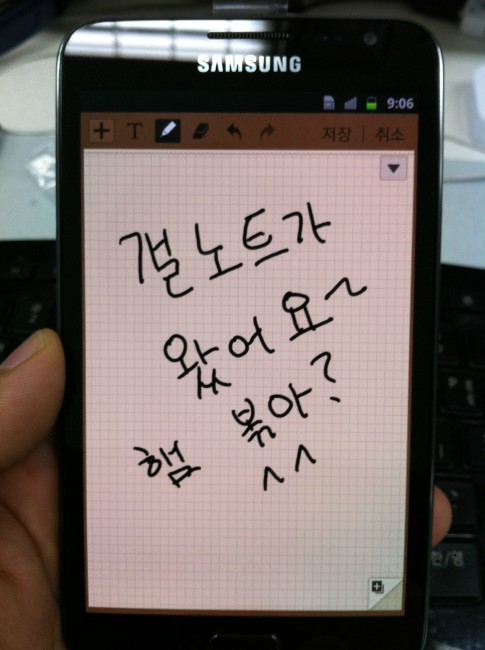 SAMSUNG
9:06
T 저장 | 취소
갤노트가
왔어요~
햄 볶아?
^^
한/영